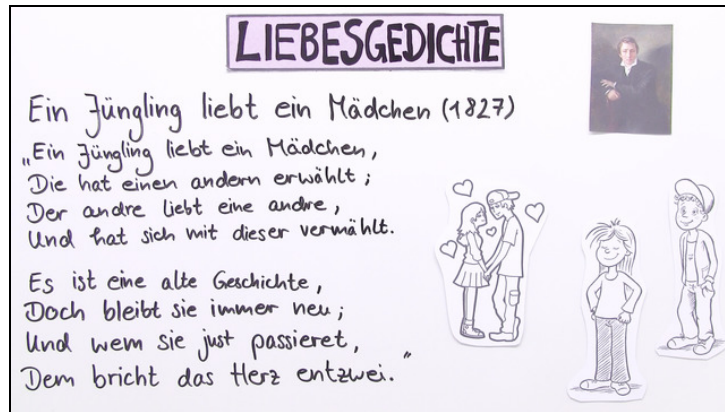 LIEBESGEDICHTE
Ein Jüngling liebt ein Mädchen (1827)
„Ein Jüngling liebt ein Mädchen,
Die hat einen andern erwählt;
Der andre liebt eine andre,
Und hat sich mit dieser vermählt.
Es ist eine alte Geschichte,
Doch bleibt sie immer neu;
Und wem sie just passieret,
Dem bricht das Herz entzwei.“